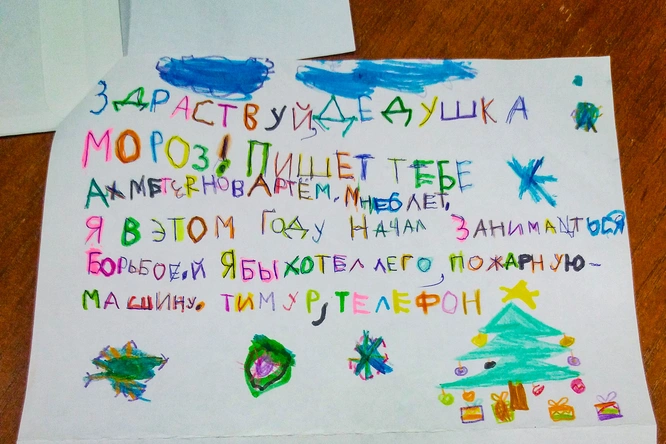 ЗДРАСТВУЙ, ДЕДУШКА
МОРОЗ! ПИШЕТ ТЕБЕ
АХМЕТЗЯНОВ АРТЁМ. МНЕ 6 ЛЕТ.
Я В ЭТОМ ГОДУ НАЧАЛ ЗАНИМАТЬСЯ
БОРЬБОЙ. Я БЫ ХОТЕЛ ЛЕГО, ПОЖАРНУЮ-
МАШИНУ. ТИМУР, ТЕЛЕФОН